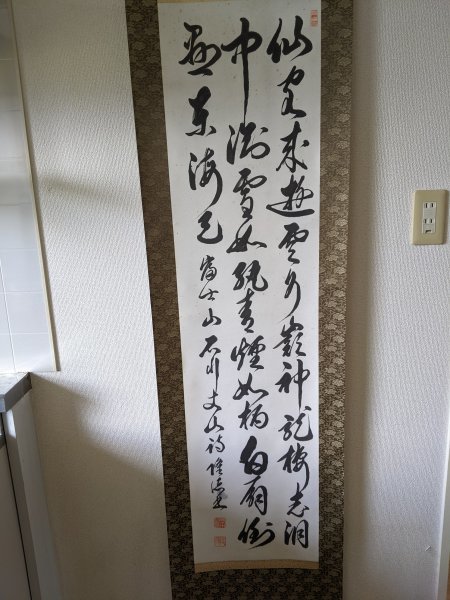 仙客来遊雲外巓神龍棲老洞
中淵雪如紈素煙如柄白扇倒
懸東海天 富士山 石川丈山詩